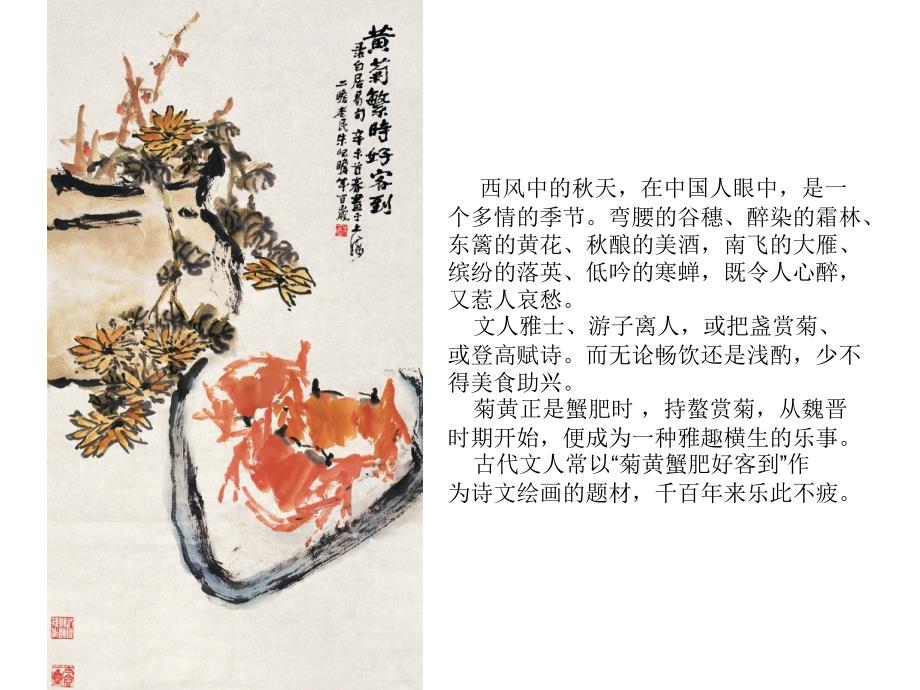 黄菊繁時好客到
录白居易句 辛未首春画于上海
二瞻老民朱屺瞻年百岁
西风中的秋天，在中国人眼中，是一
个多情的季节。弯腰的谷穗、醉染的霜林、
东篱的黄花、秋酿的美酒，南飞的大雁、
缤纷的落英、低吟的寒蝉，既令人心醉，
又惹人哀愁。
文人雅士、游子离人，或把盏赏菊、
或登高赋诗。而无论畅饮还是浅酌，少不
得美食助兴。
菊黄正是蟹肥时 ，持螯赏菊，从魏晋
时期开始，便成为一种雅趣横生的乐事。
古代文人常以“菊黄蟹肥好客到”作
为诗文绘画的题材，千百年来乐此不疲。